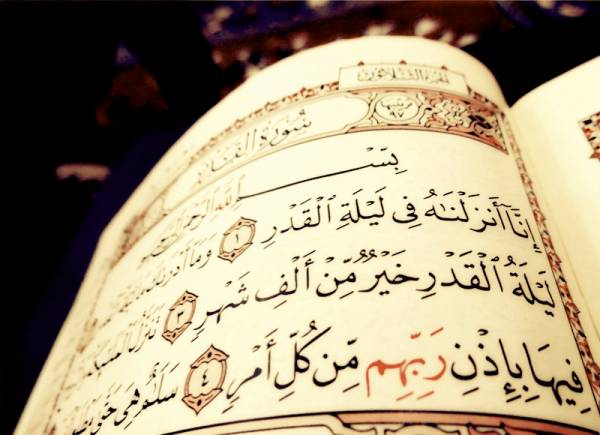 الجزء الثلاثون
سورة القدر ٩٧
بِسْــــمِ اللَّهِ الرَّحْمَٰنِ الرَّحِيمِ
إِنَّآ أَنزَلْنَٰهُ فِى لَيْلَةِ ٱلْقَدْرِ ١ وَمَآ أَدْرَىٰكَ
لَيْلَةُ ٱلْقَدْرِ خَيْرٌ مِّنْ أَلْفِ شَهْرٍ ٣ تَنَزَّلُ
فِيهَا بِإِذْنِ رَبِّهِم مِّن كُلِّ أَمْرٍ ٤ سَلَٰمٌ هِىَ حَتَّىٰ